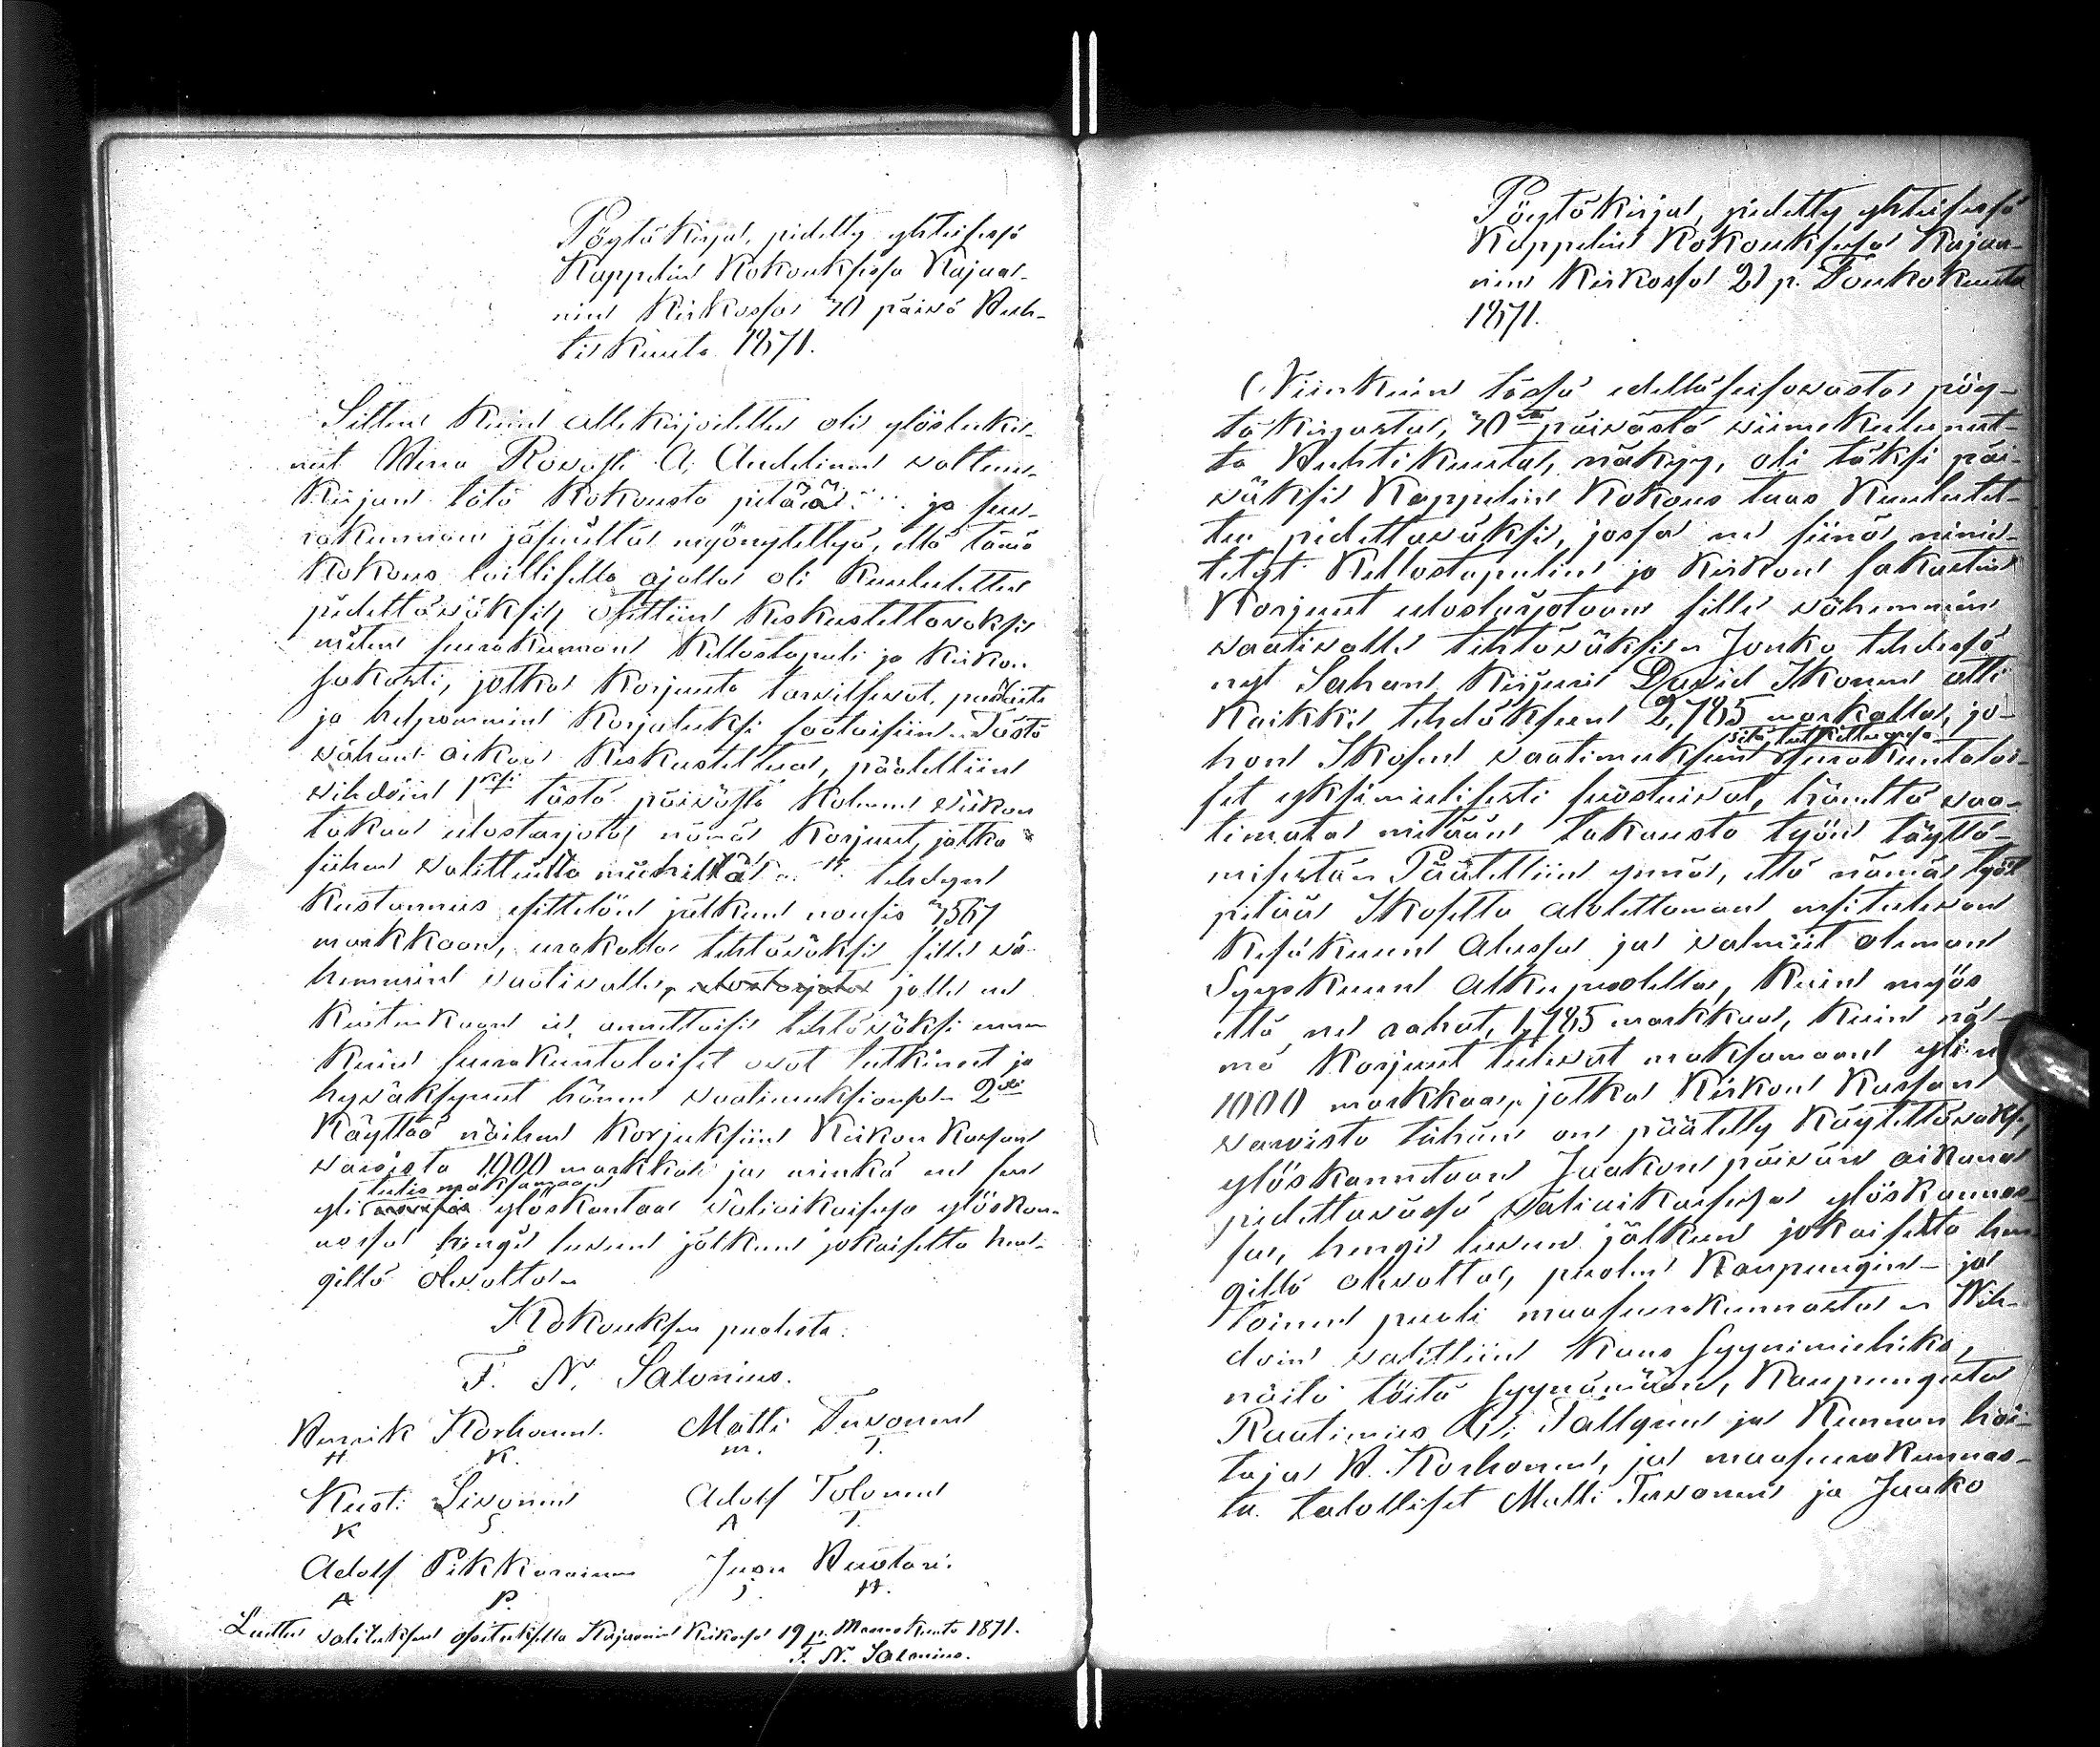 Pöytäkirja, pidetty yhteisessä
Kappelin Kokouksessa Kajaa-
nin Kirkossa 30 päivä Huh-
tikuuta 1871.
Sitten kuin allekirjoitettu oli ylösluke-
nut Herra Rovasti A. Andelinin valtuus-
kirjan tätä kokousta pitää ja seu-
rakunnan jäseniltä myönnytettyä, että tämä
Kokous laillisella ajalla oli kuulutettu
pidettäväksi, otettiin keskusteltavaksi
miten seurakunnan Kellotapuli ja kirkon
sakasti, jotka korjuuta tarvitsevat, paraiten
ja helpommin korjatuksi saataisiin. Tästä
vähän aikaa keskusteltua, päätettiin
vihdoin 1ksi tästä päivästä kolmen viikon
takaa ulostarjota nämä korjuut, jotka
siihen valituilta miehiltä tehdyn
kustannus esittelön jälkeen nousis 3567
markkaan, urakalla tehtäväksi sille vä-
hemmin vaativalle, ulostarjota jolle ne
kuitenkaan ei annettaisi tehtäväksi ennen
kuin seurakuntalaiset ovat tutkineet ja
hyväksyneet hänen vaatimuksiansa. 2ksi
Käyttää näihin korjuksiin Kirkon Kassan
varoista 1000 markkaa ja minkä ne sen
tulis maksamaan
yli nousis ylöskantaa väliaikaisessa ylöskan-
nossa hengil luvun jälkeen jokaiselta hen-
giltä olevalta.
Kokouksen puolesta:
F. N. Salonius.
Henrik Korhonen. Matti Tervonen
H K. m. T.
Kusti Sivonen Adolf Tolonen
K S A T.
Adolf Pikkarainen Juho Huotari.
A P. J. H.
Luettu valituksen osoituksella Kajaanin Kirkossa 19 p. Marraskuuta 1871.
F. N. Salonius.
Pöytäkirja, pidetty yhteisessä
Kappelin Kokouksessa Kajaa-
nin Kirkossa 21 p. Toukokuuta
1871.
Niinkuin tässä edelläseisovasta pöy-
täkirjasta, 30ta päivästä viimekulunut-
ta Huhtikuuta, näkyy, oli täksi päi-
väksi Kappelin Kokous taas kuulutet-
tu pidettäväksi, jossa ne siinä nimi-
tetyt Kellotapulin ja kirkon sakastin
korjuut ulostarjotaan sille vähemmän
vaativalle tehtäväksi. Jonka tehdessä
nyt Sahan Kirjuri David Ikonen otti
kaikki tehdäkseen 2,785 markalla, jo-
sitä tutkittuansa
hon Ikosen vaatimukseen seurakuntalai-
set yksimielisesti suostuivat, häneltä vaa-
timata mitään takausta työn täyttä-
misestä. Päätettiin ynnä, että nämä työt
pitää Ikoselta alotettaman ensitulevan
Kesäkuun alussa ja valmiit oleman
Syyskuun alkupuolella, kuin myös
että ne rahat, 1,785 markkaa, kuin nä-
mä korjuut tulevat maksamaan yli ne
1000 markkaa, jotka Kirkon Kassan
varoista tähän on päätetty käytettäväksi,
ylöskannetaan Jaakon päivän aikana
pidettävässä väliaikaisessa ylöskannos-
sa, hengil luvun jälkeen jokaiselta hen-
giltä olevalta, puolen Kaupungin- ja
toinen puoli maaseurakunnasta. Vih-
doin valittiin kans syynimiehiksi,
näitä töitä syynäämään, Kaupungista
Raatimies A. Tallgren ja Kunnan hoi-
taja H. Korhonen, ja maaseurakunnas-
ta talolliset Matti Tervonen ja Jaako